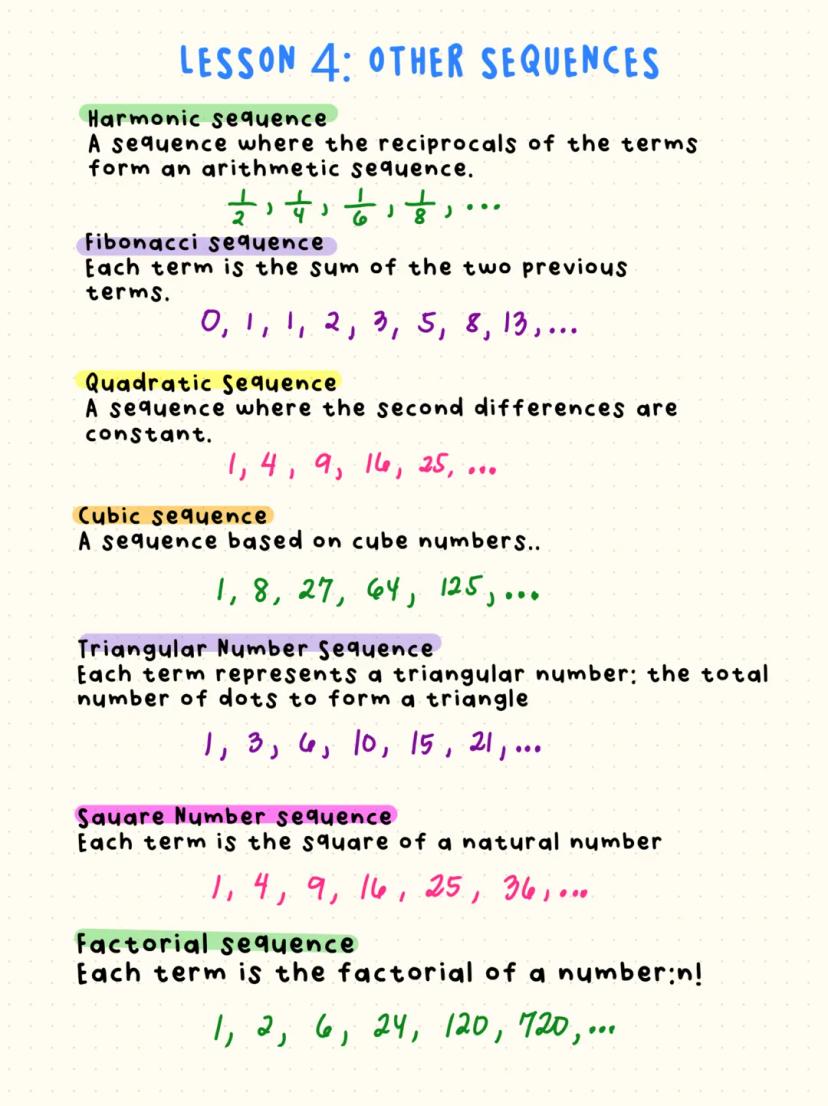 LESSON 4: OTHER SEQUENCES
Harmonic sequence
A sequence where the reciprocals of the terms
form an arithmetic sequence.
1/2, 1/4, 1/6, 1/8, ...
Fibonacci sequence
Each term is the sum of the two previous
terms.
0, 1, 1, 2, 3, 5, 8, 13, ...
Quadratic Sequence
A sequence where the second differences are
constant.
1, 4, 9, 16, 25, ...
Cubic sequence
A sequence based on cube numbers..
1, 8, 27, 64, 125, ...
Triangular Number Sequence
Each term represents a triangular number: the total
number of dots to form a triangle
1, 3, 6, 10, 15, 21, ...
Sauare Number sequence
Each term is the square of a natural number
1, 4, 9, 16, 25, 36, ...
Factorial sequence
Each term is the factorial of a number:n!
1, 2, 6, 24, 120, 720, ...